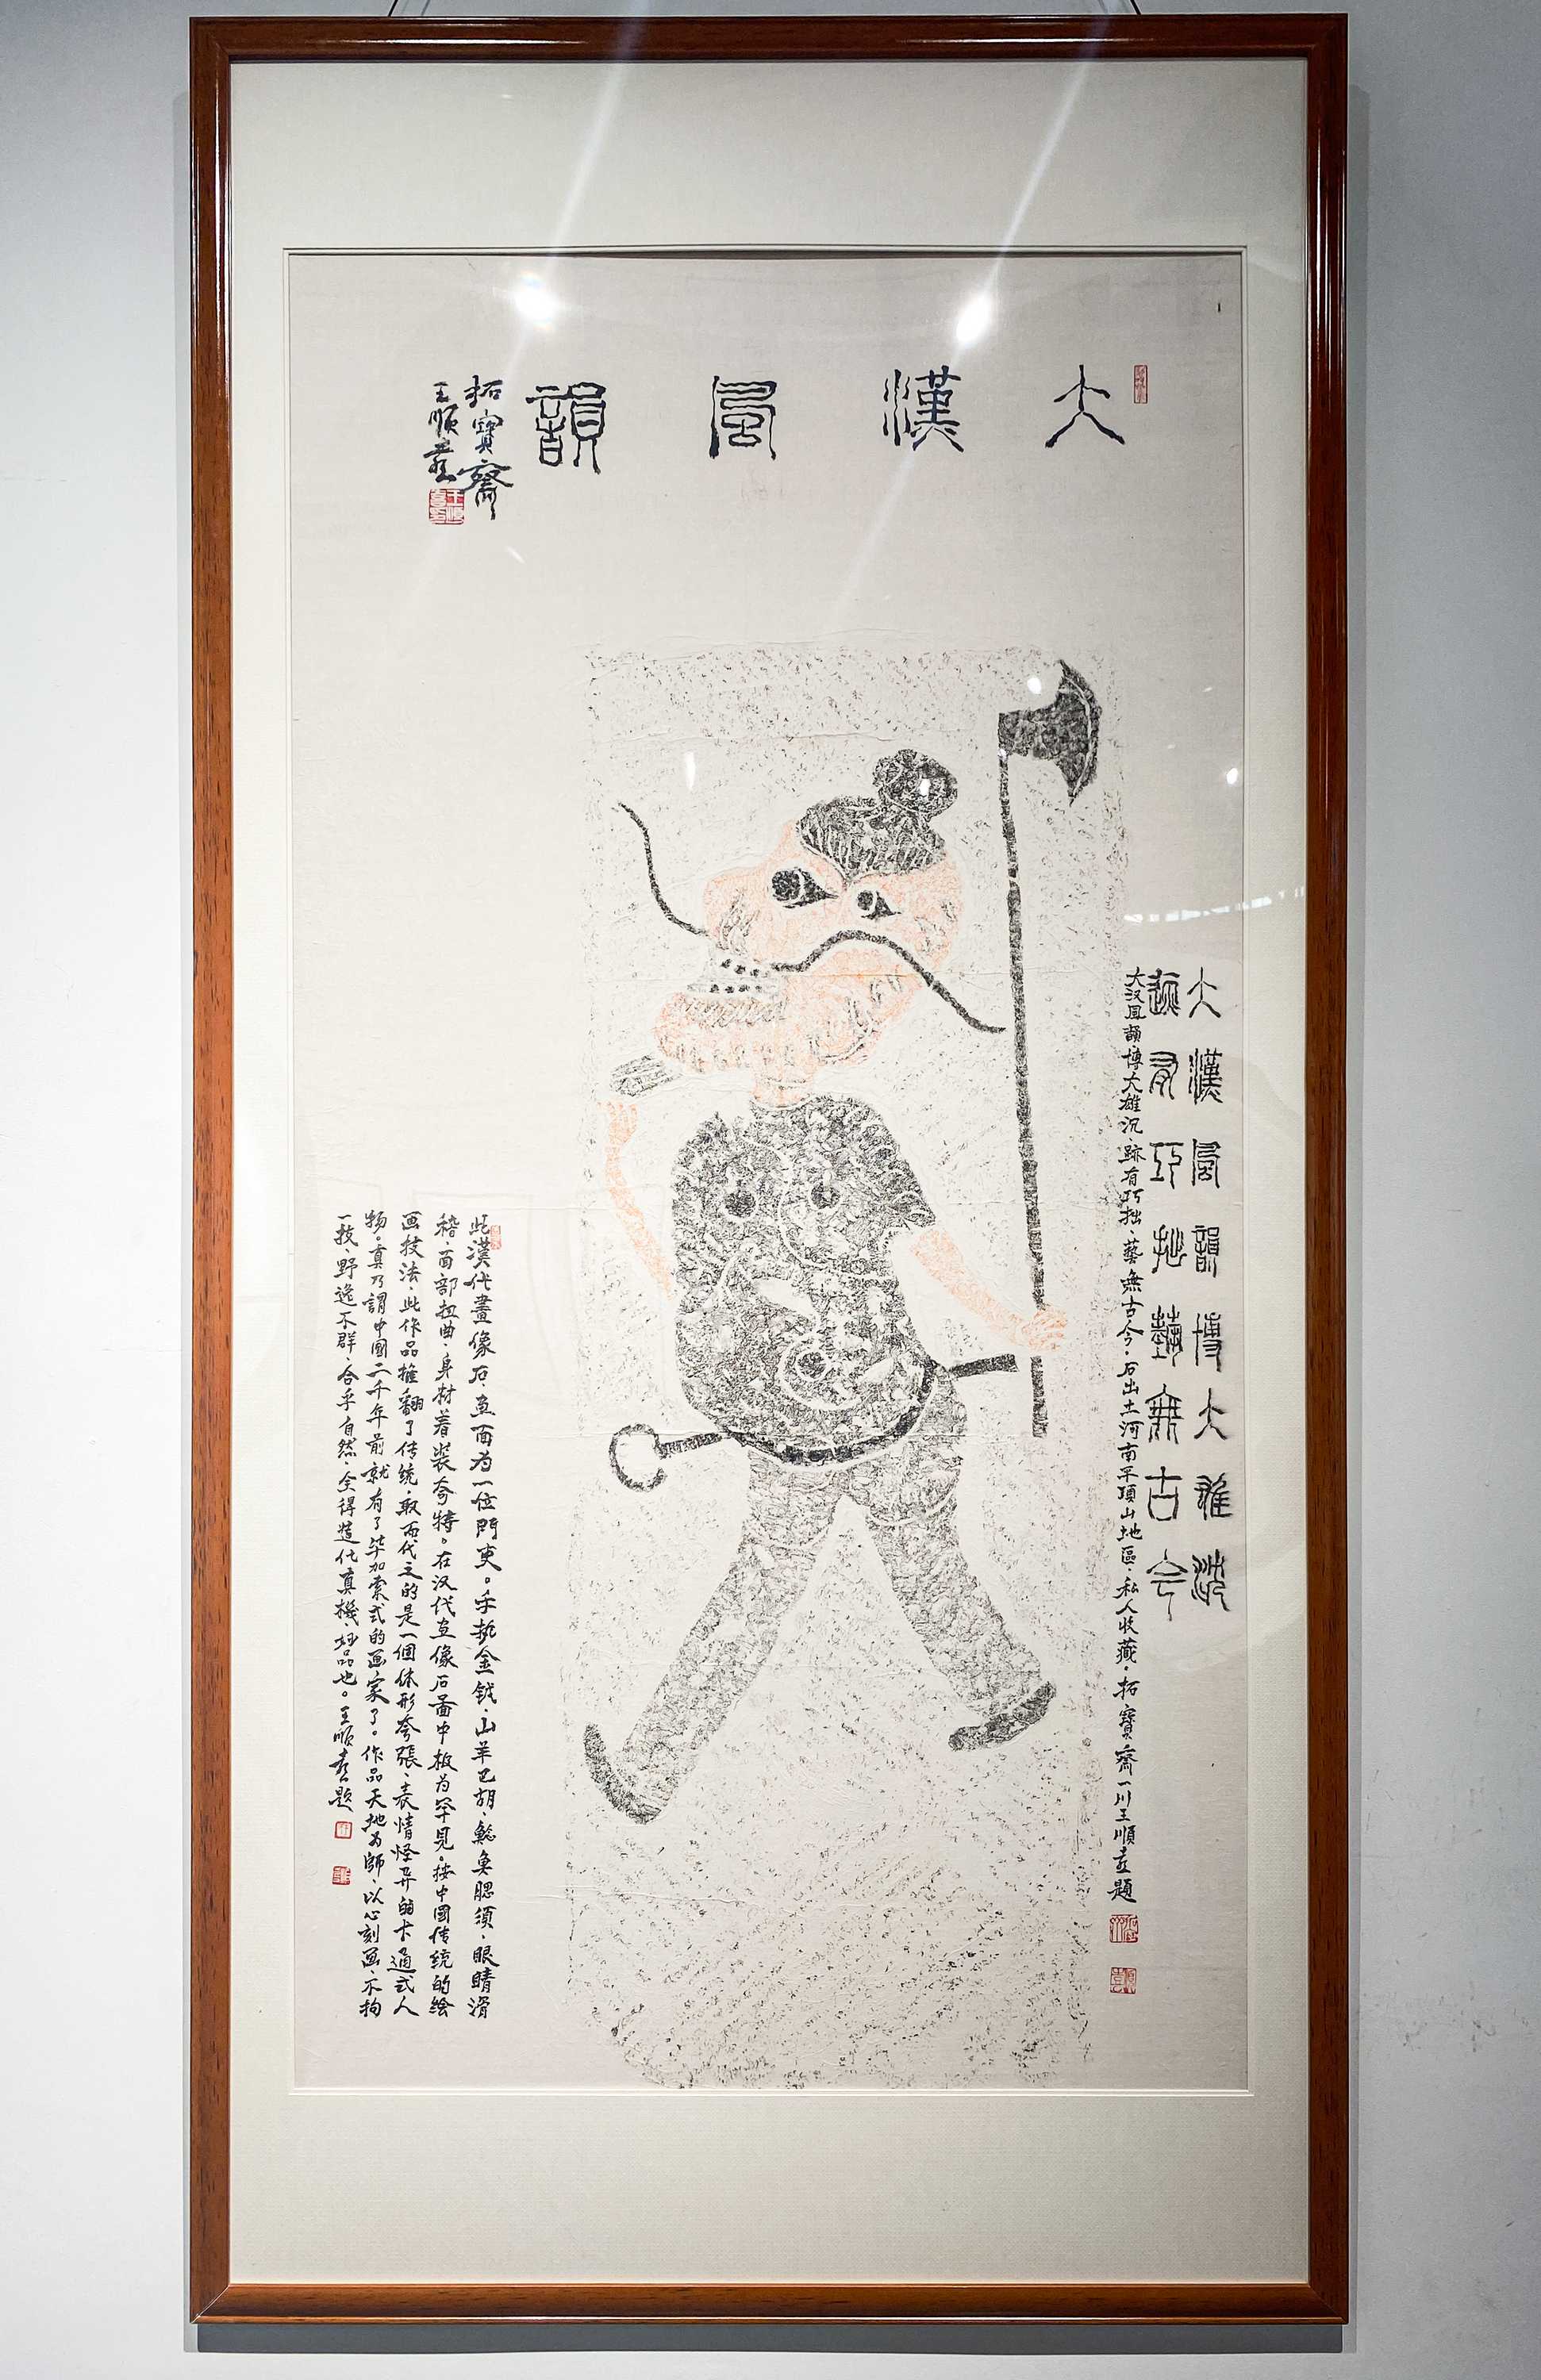 大漢風韻
拓寶齋
王順喜
大漢風韻博大雄沈
跡有巧拙藝無古今
大汉風韻、博大雄沉、跡有巧拙、藝無古今。石出土河南平頂山地區、私人收藏。拓寶齋一川王順喜題
此漢代畫像石、画面为一位門吏。手執金鉞、山羊巴胡、鯰魚腮須、眼睛滑
稽、面部扭曲、身材着装夸特。在汉代画像石畫中极为罕見。按中國传统的绘
画技法、此作品推翻了传统、取而代之的是一個体形夸張、表情怪异的卡通式人
物。真乃謂中國二千年前就有了毕加索式的画家了。作品天地为師、以心刻画、不拘
一技、野逸不群、合乎自然、全得造化真機、妙品也。王順喜题